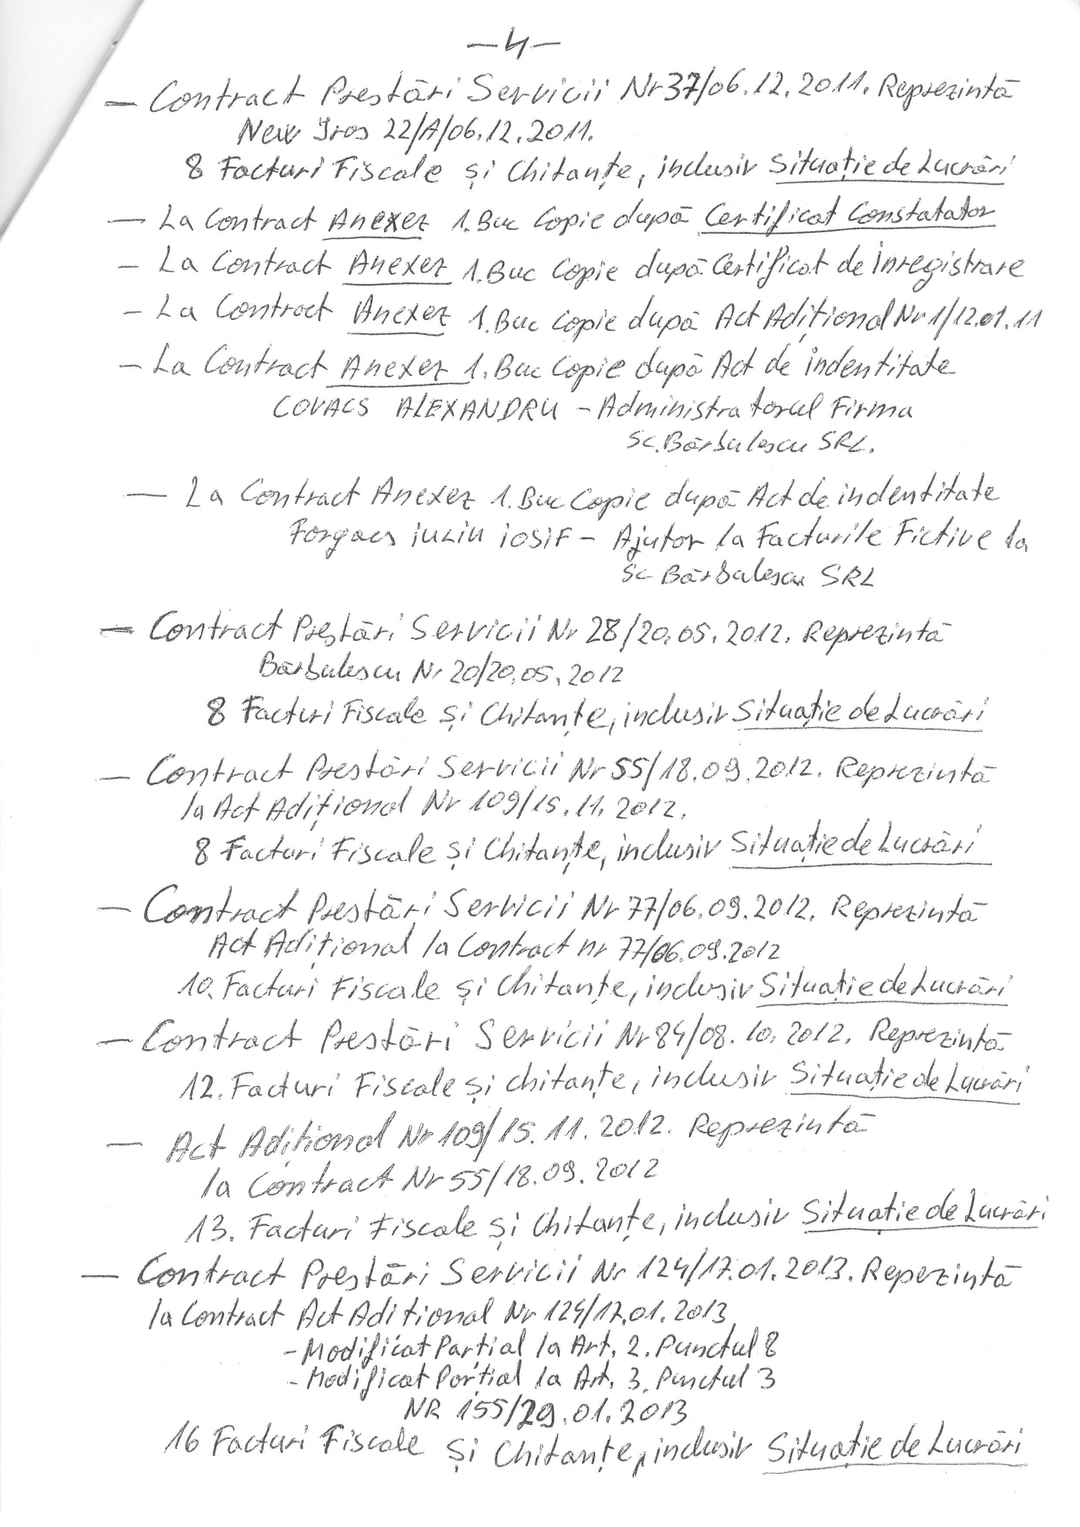 -4-
- Contract Prestări Servicii Nr 37/06.12.2011. Reprezintă
New Gros 22/A/06.12.2011.
8 Facturi Fiscale și Chitanțe, inclusiv Situație de Lucrări
- La Contract Anexez 1.Buc Copie după Certificat Constatator
- La Contract Anexez 1.Buc Copie după Certificat de Înregistrare
- La Contract Anexez 1.Buc Copie după Act Adițional Nr 1/12.01.11
- La Contract Anexez 1.Buc Copie după Act de indentitate
COVACS ALEXANDRU - Administratorul Firma
SC.Bărbulescu SRL.
- La Contract Anexez 1.Buc Copie după Act de indentitate
Forgacs iuLiu iosiF - Ajutor la Facturile Fictive la
Sc Bărbulescu SRL
- Contract Prestări Servicii Nr 28/20.05.2012. Reprezintă
Bărbulescu Nr 20/20.05.2012
8 Facturi Fiscale și Chitanțe, inclusiv Situație de Lucrări
- Contract Prestări Servicii Nr 55/18.09.2012. Reprezintă
la Act Adițional Nr 109/15.11.2012.
8 Facturi Fiscale și Chitanțe, inclusiv Situație de Lucrări
- Contract Prestări Servicii Nr 77/06.09.2012. Reprezintă
Act Adițional la Contract nr 77/06.09.2012
10. Facturi Fiscale și Chitanțe, inclusiv Situație de Lucrări
- Contract Prestări Servicii Nr 84/08.10.2012. Reprezintă
12. Facturi Fiscale și chitanțe, inclusiv Situație de Lucrări
- Act Adițional Nr 109/15.11.2012. Reprezintă
la Contract Nr 55/18.09.2012
13. Facturi Fiscale și Chitanțe, inclusiv Situație de Lucrări
- Contract Prestări Servicii Nr 124/17.01.2013. Repezintă
la Contract Act Aditional Nr 124/17.01.2013
- Modificat Parțial la Art. 2. Punctul 8
- Modificat Parțial la Art. 3. Punctul 3
NR 155/29.01.2013
16 Facturi Fiscale și Chitanțe, inclusiv Situație de Lucrări